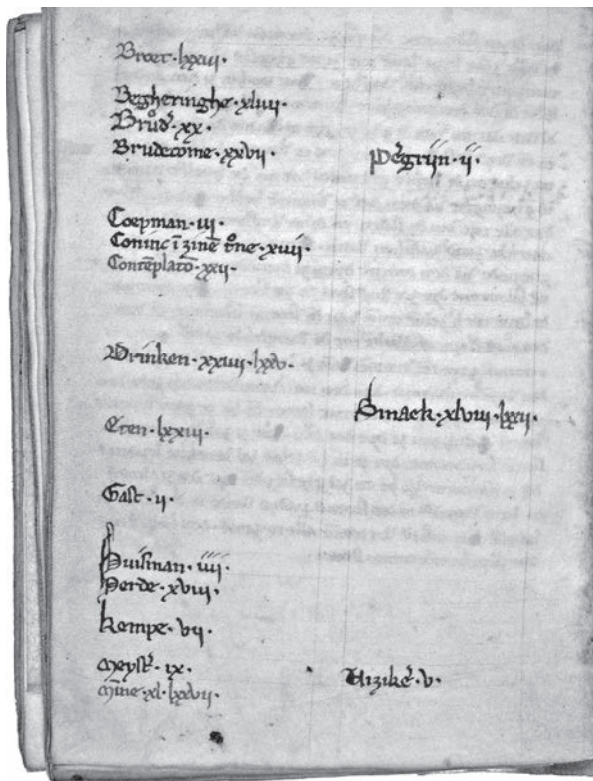 Broet · lxxiii ·
Begheringhe · xliiii ·
Brůd᷎ · xx ·
Brudecome · xxvii ·
Coepman · iii ·
Coninc ī zinē tͦne · xviii ·
Contēplatō · xxii ·
Drinken · xxiiii · lxxv ·
Eten · lxxiii ·
Gast · ii ·
Huisman · iiii ·
Herde · xviii ·
Kempe · vii ·
Meyst᷎ · ix ·
Mīne · xl · lxxvii ·
Pegrijn · ii ·
Smaek · xlviii · lxxii ·
Vizike᷎ · v ·